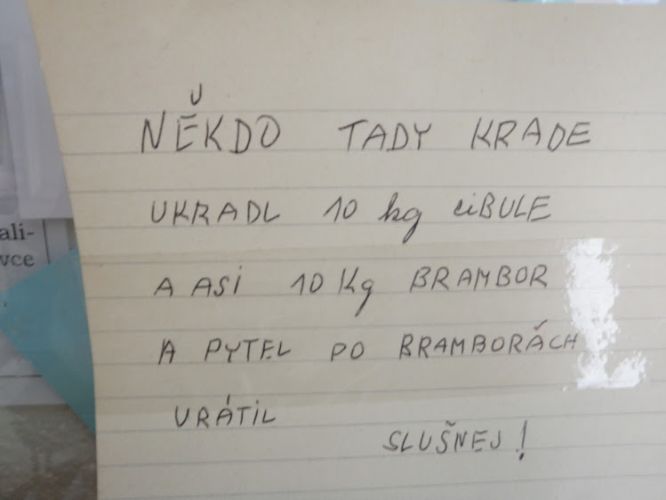 ali-
vce
NĚKDO TADY KRADE
UKRADL 10 kg ciBULE
A ASi 10 Kg BRAMBOR
A PYTEL PO BRAMBORÁCH
VRÁTiL
SLUŠNEJ!